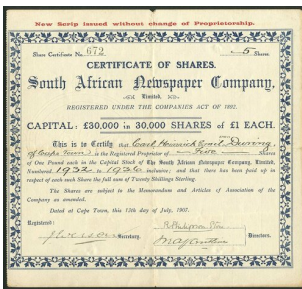 New Scrip issued without change of Proprietorship.
Share Certificate No. 672
5 Shares.
CERTIFICATE OF SHARES.
South African Newspaper Company,
Limited,
REGISTERED UNDER THE COMPANIES ACT OF 1892.
CAPITAL: £30,000 in 30,000 SHARES of £1 EACH.
This is to Certify that Carl Heinrich Emil During
of Cape Town is the Registered Proprietor of Five Shares
of One Pound each in the Capital Stock of The South African Newspaper Company, Limited,
Numbered 1932 to 1936 inclusive; and that there has been paid up in
respect of each such Share the full sum of Twenty Shillings Sterling.
The Shares are subject to the Memorandum and Articles of Association of the
Company as amended.
Dated at Cape Town, this 13th day of July, 1907.
Registered:
Secretary.
Directors.